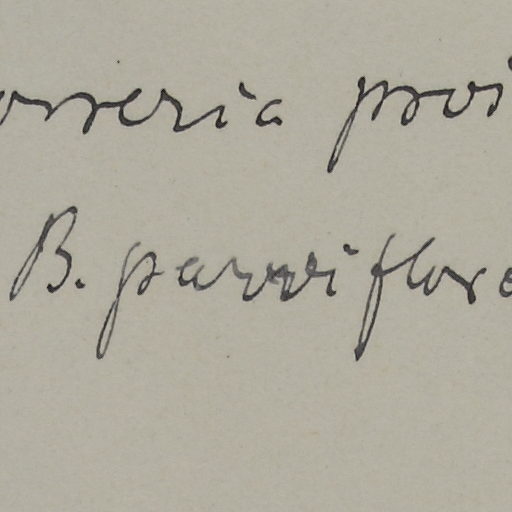 orreria
B. parviflora